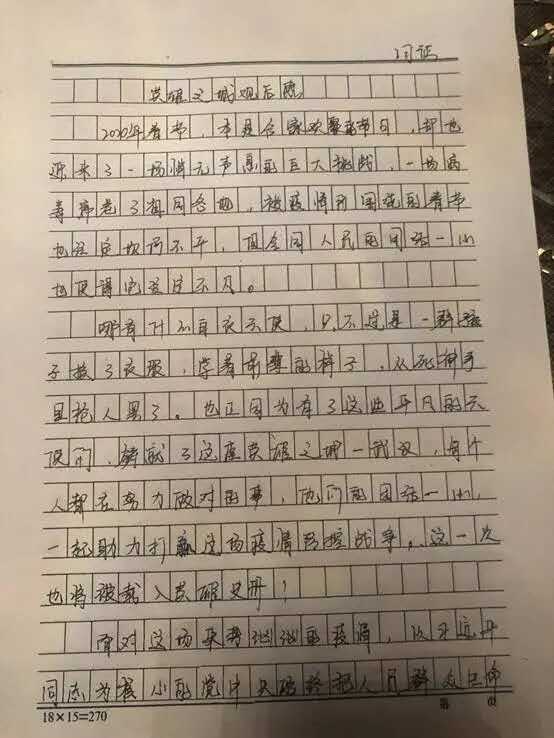 英雄之城观后感
2020年春节，本是合家欢聚的节日，却也
迎来了一场悄无声息的巨大挑战，一场病
毒席卷了祖国各地，被疫情所围绕的春节
也注定坎坷不平，但全国人民的团结一心
也使得它注定不凡。
哪有什么白衣天使，只不过是一群孩
子换了衣服，学着前辈的样子，从死神手
里抢人罢了。也正因为有了这些平凡的天
使们，铸就了这座英雄之城—武汉，每个
人都在努力做对的事，他们的团结一心，
一起助力打赢这场疫情防控战争，这一次
也将被载入英雄史册！
面对这场来势汹汹的疫情，以习近平
同志为核心的党中央始终把人民群众生命
18×15=270
第 页